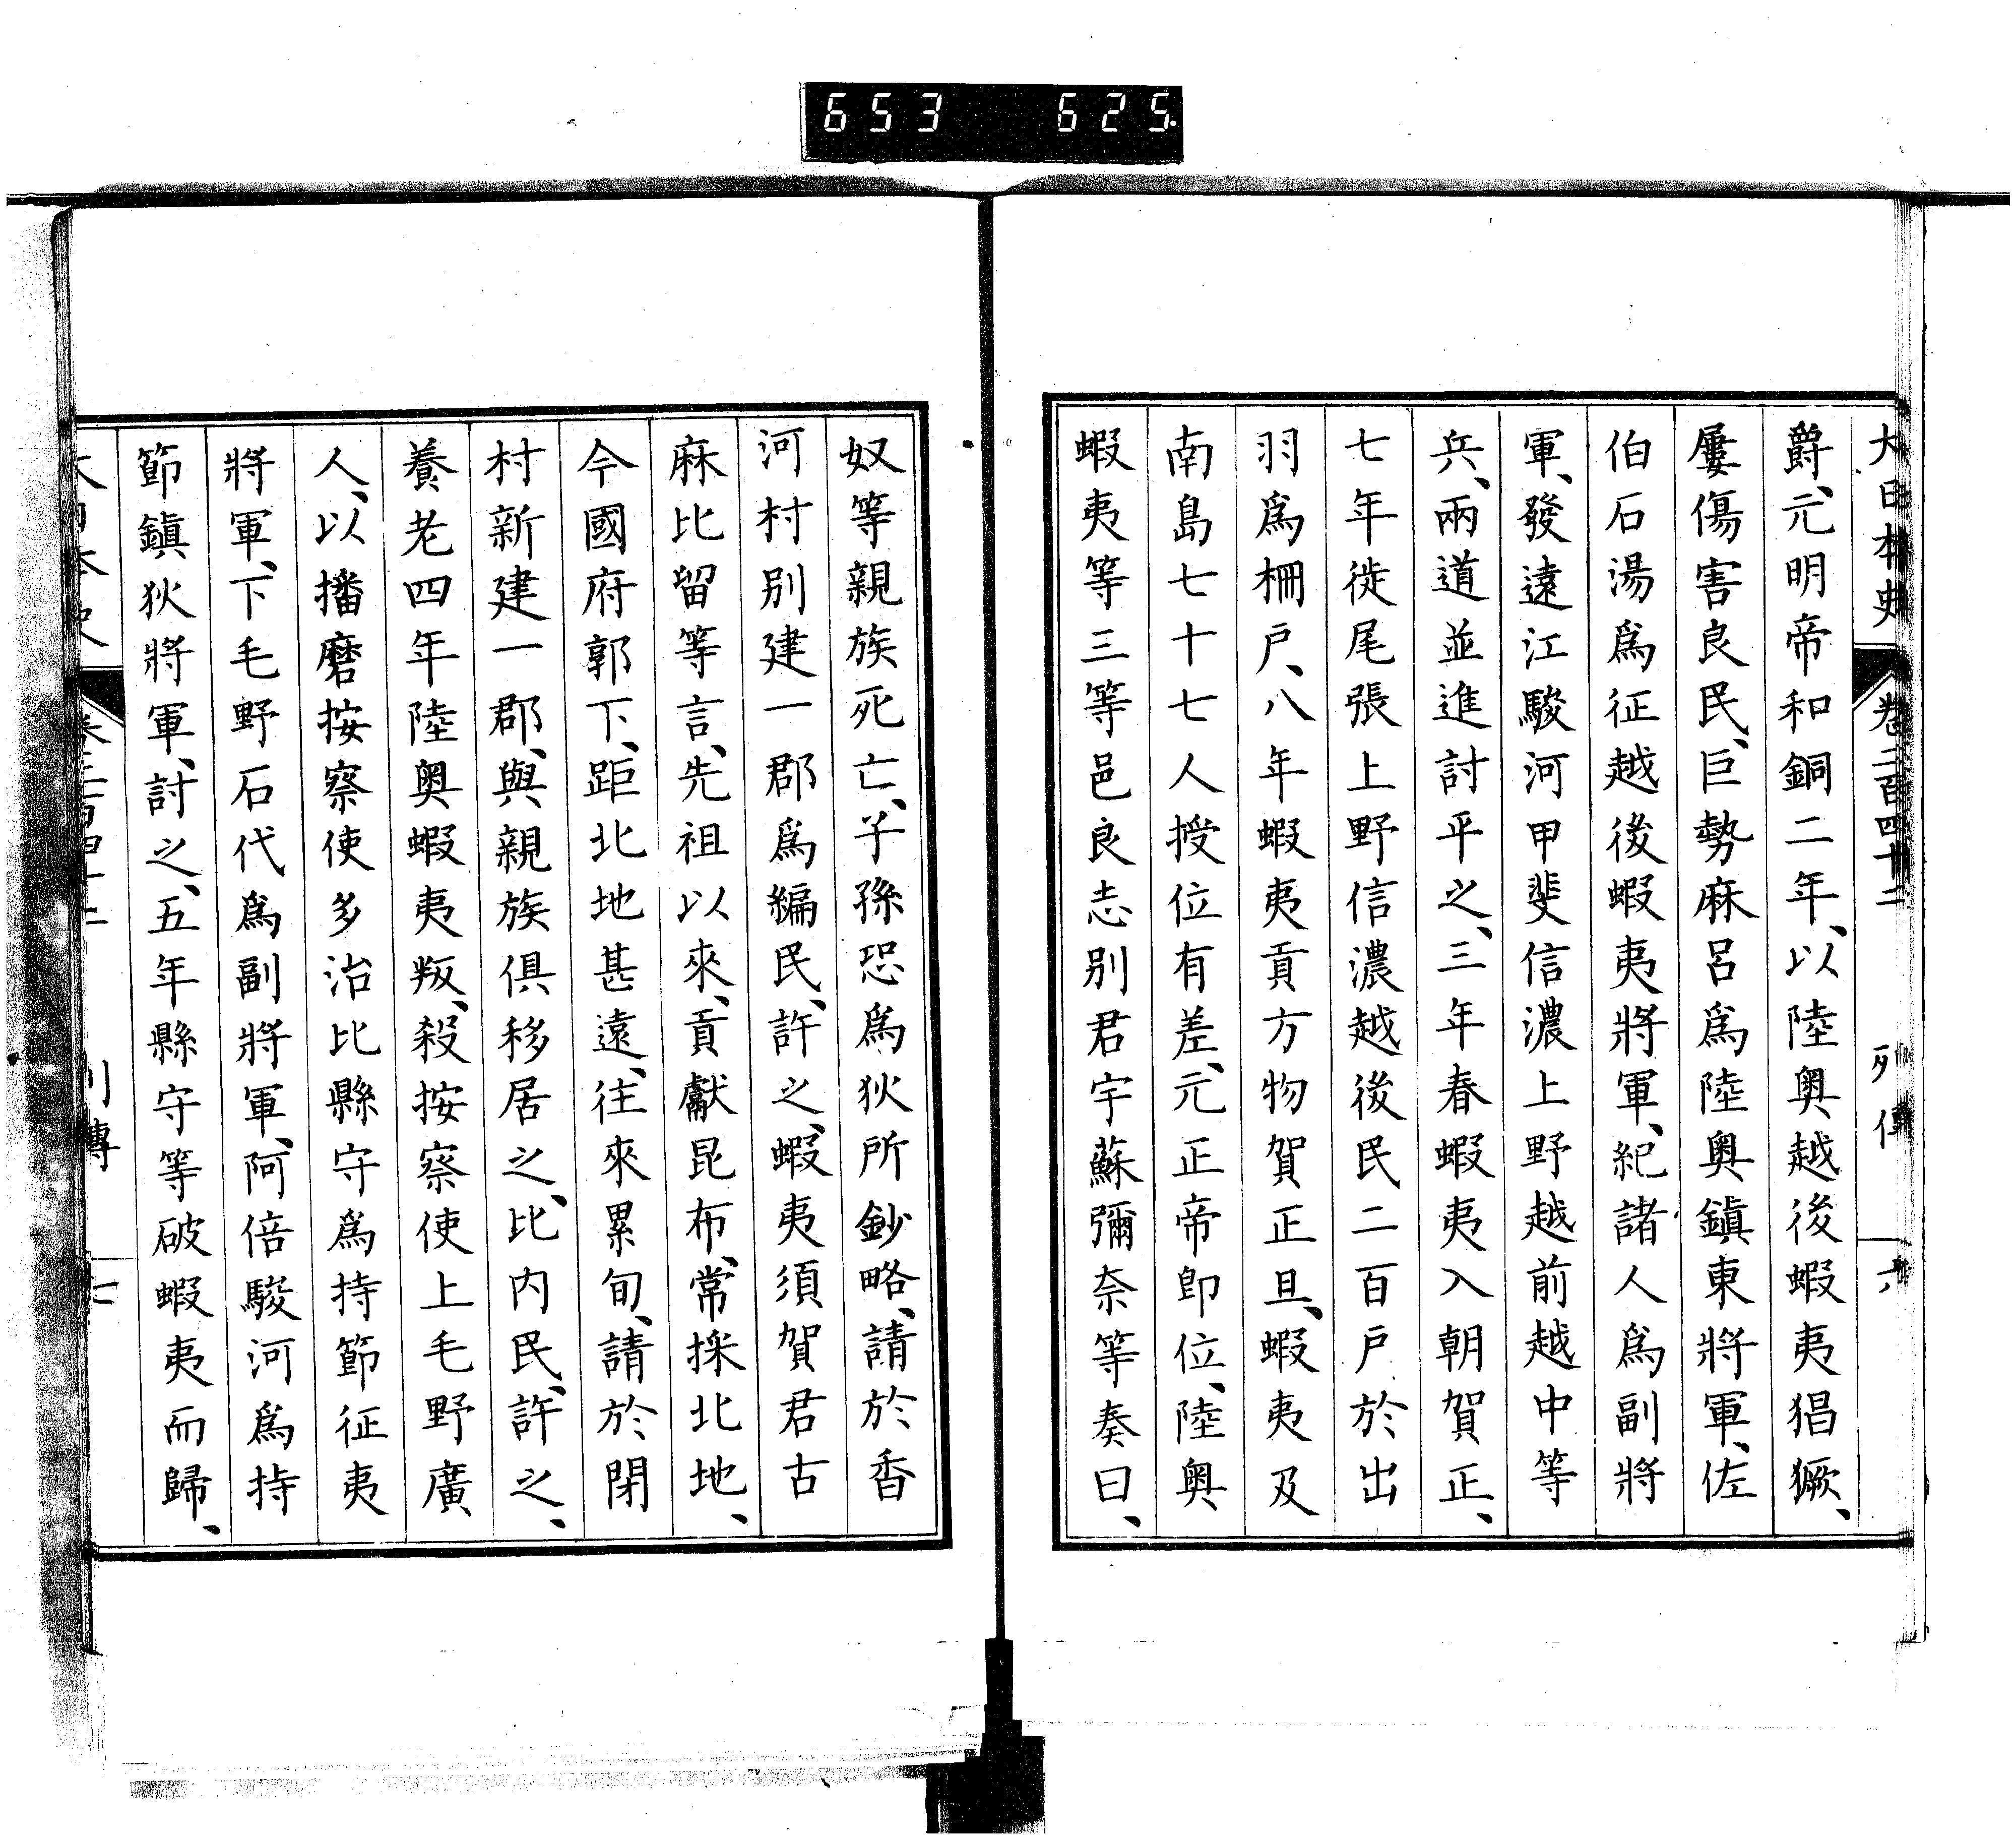 653 625.
大日本史 卷二百四十二 列傳 六
爵、元明帝和銅二年、以陸奥越後蝦夷猖獗、
屢傷害良民、巨勢麻呂爲陸奥鎭東將軍、佐
伯石湯爲征越後蝦夷將軍、紀諸人爲副將
軍、發遠江駿河甲斐信濃上野越前越中等
兵、兩道並進討平之、三年春蝦夷入朝賀正、
七年徙尾張上野信濃越後民二百戸於出
羽爲柵戸、八年蝦夷貢方物賀正旦、蝦夷及
南島七十七人授位有差、元正帝卽位、陸奥
蝦夷等三等邑良志別君宇蘇彌奈等奏曰、
奴等親族死亡、子孫恐爲狄所鈔略、請於香
河村別建一郡爲編民、許之、蝦夷須賀君古
麻比留等言、先祖以來、貢獻昆布、常採北地、
今國府郭下、距北地甚遠、往來累旬、請於閉
村新建一郡、與親族俱移居之、比内民、許之、
養老四年陸奥蝦夷叛、殺按察使上毛野廣
人、以播磨按察使多治比縣守爲持節征夷
將軍、下毛野石代爲副將軍、阿倍駿河爲持
節鎭狄將軍、討之、五年縣守等破蝦夷而歸、
大日本史 卷二百四十二 列傳 七